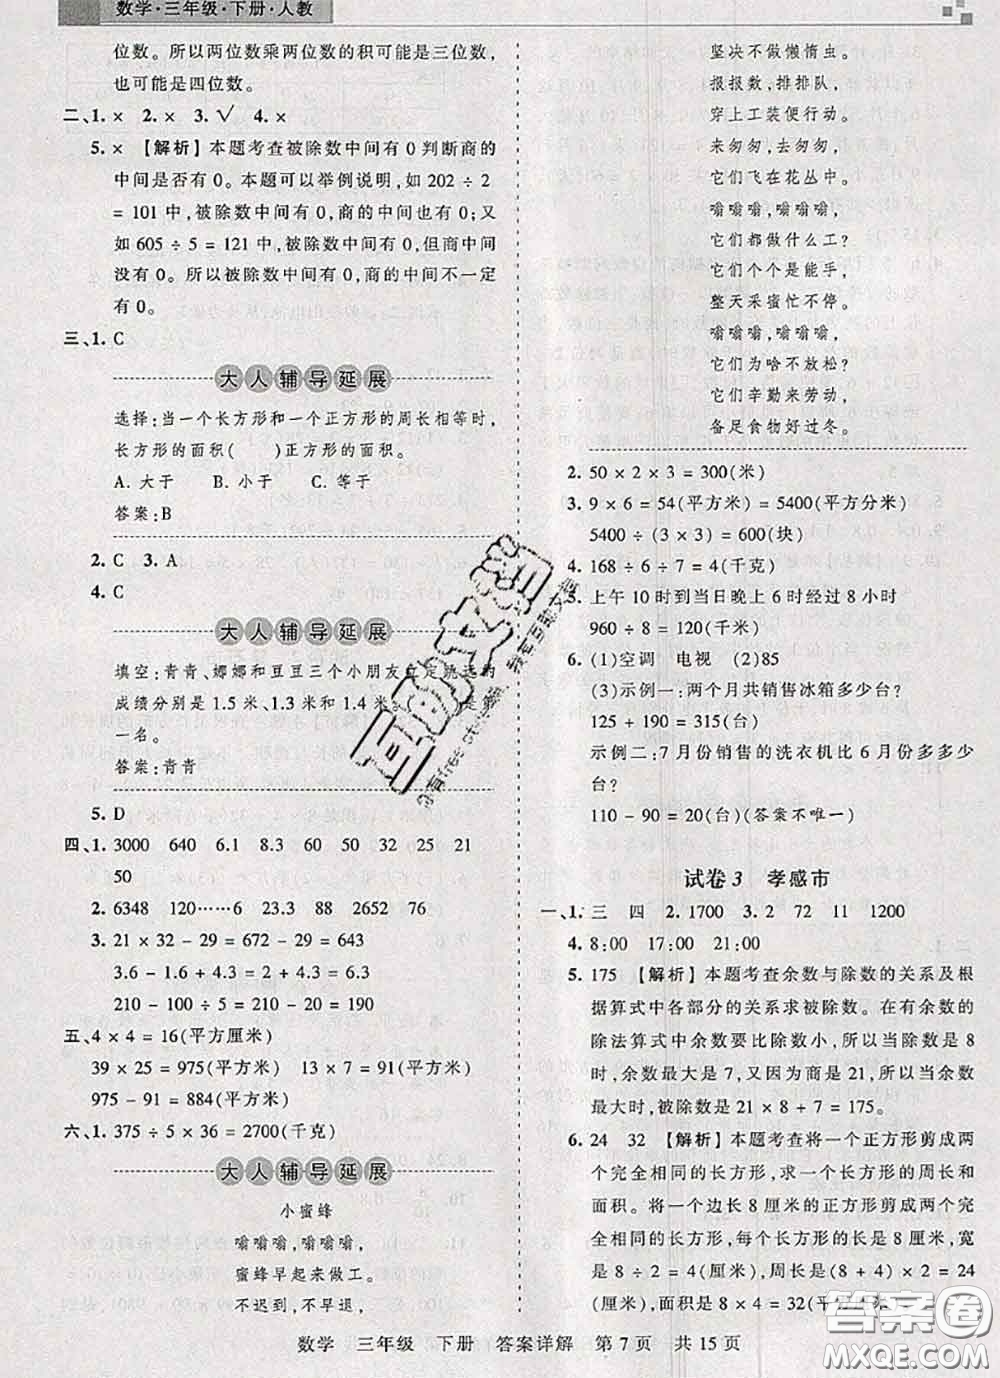 数学·三年级·下册·人教
位数。所以两位数乘两位数的积可能是三位数,
也可能是四位数。
二、1. × 2. × 3. √ 4. ×
5. × 【解析】本题考查被除数中间有0判断商的
中间是否有0。本题可以举例说明,如202÷2
=101中,被除数中间有0,商的中间也有0;又
如605÷5=121中,被除数中间有0,但商中间
没有0。所以被除数中间有0,商的中间不一定
有0。
三、1. C
大人辅导延展
选择:当一个长方形和一个正方形的周长相等时,
长方形的面积( )正方形的面积。
A. 大于 B. 小于 C. 等于
答案:B
2. C 3. A
4. C
大人辅导延展
填空:青青、娜娜和豆豆三个小朋友立定跳远的
成绩分别是1.5米、1.3米和1.4米。 是第
一名。
答案:青青
5. D
四、1. 3000 640 6.1 8.3 60 50 32 25 21
50
2. 6348 120……6 23.3 88 2652 76
3. 21×32-29=672-29=643
3.6-1.6+2.4=2+2.4=4.4
210-910÷7=210-130=80
五、4×4=16(平方厘米)
39×25=975(平方米) 13×7=91(平方米)
975-91=884(平方米)
六、1. 375÷5×36=2700(千克)
大人辅导延展
小蜜蜂
嗡嗡嗡,嗡嗡嗡,
蜜蜂早起来做工。
不迟到,不早退,
坚决不做懒惰虫。
报报数,排排队,
穿上工装便行动。
来匆匆,去匆匆,
它们飞在花丛中。
嗡嗡嗡,嗡嗡嗡,
它们都做什么工?
它们个个是能手,
整天采蜜忙不停。
嗡嗡嗡,嗡嗡嗡,
它们为啥不放松?
它们辛勤来劳动,
备足食物好过冬。
2. 50×2×3=300(米)
3. 9×6=54(平方米)=5400(平方分米)
5400÷(3×3)=600(块)
4. 168÷6÷7=4(千克)
5. 上午10时到当日晚上6时经过8小时
960÷8=120(千米)
6. (1)空调 电视 (2)85
(3)示例一:两个月共销售冰箱多少台?
125+190=315(台)
示例二:7月份销售的洗衣机比6月份多多少
台?
110-90=20(台)(答案不唯一)
试卷3 孝感市
一、1. 三 四 2. 1700 3. 2 72 11 1200
4. 8:00 17:00 21:00
5. 175 【解析】本题考查余数与除数的关系及根
据算式中各部分的关系求被除数。在有余数的
除法算式中余数要比除数小,所以当除数是8
时,余数最大是7,又因为商是21,所以当余数
最大时,被除数是21×8+7=175。
6. 24 32 【解析】本题考查将一个正方形剪成两
个完全相同的长方形,求一个长方形的周长和
面积。将一个边长8厘米的正方形剪成两个完
全相同的长方形,每个长方形的长是8厘米,宽
是8÷2=4(厘米),周长是(8+4)×2=24
(厘米),面积是8×4=32(平方厘米)。
数学 三年级 下册 答案详解 第7页 共15页
答案圈
MXQE.COM